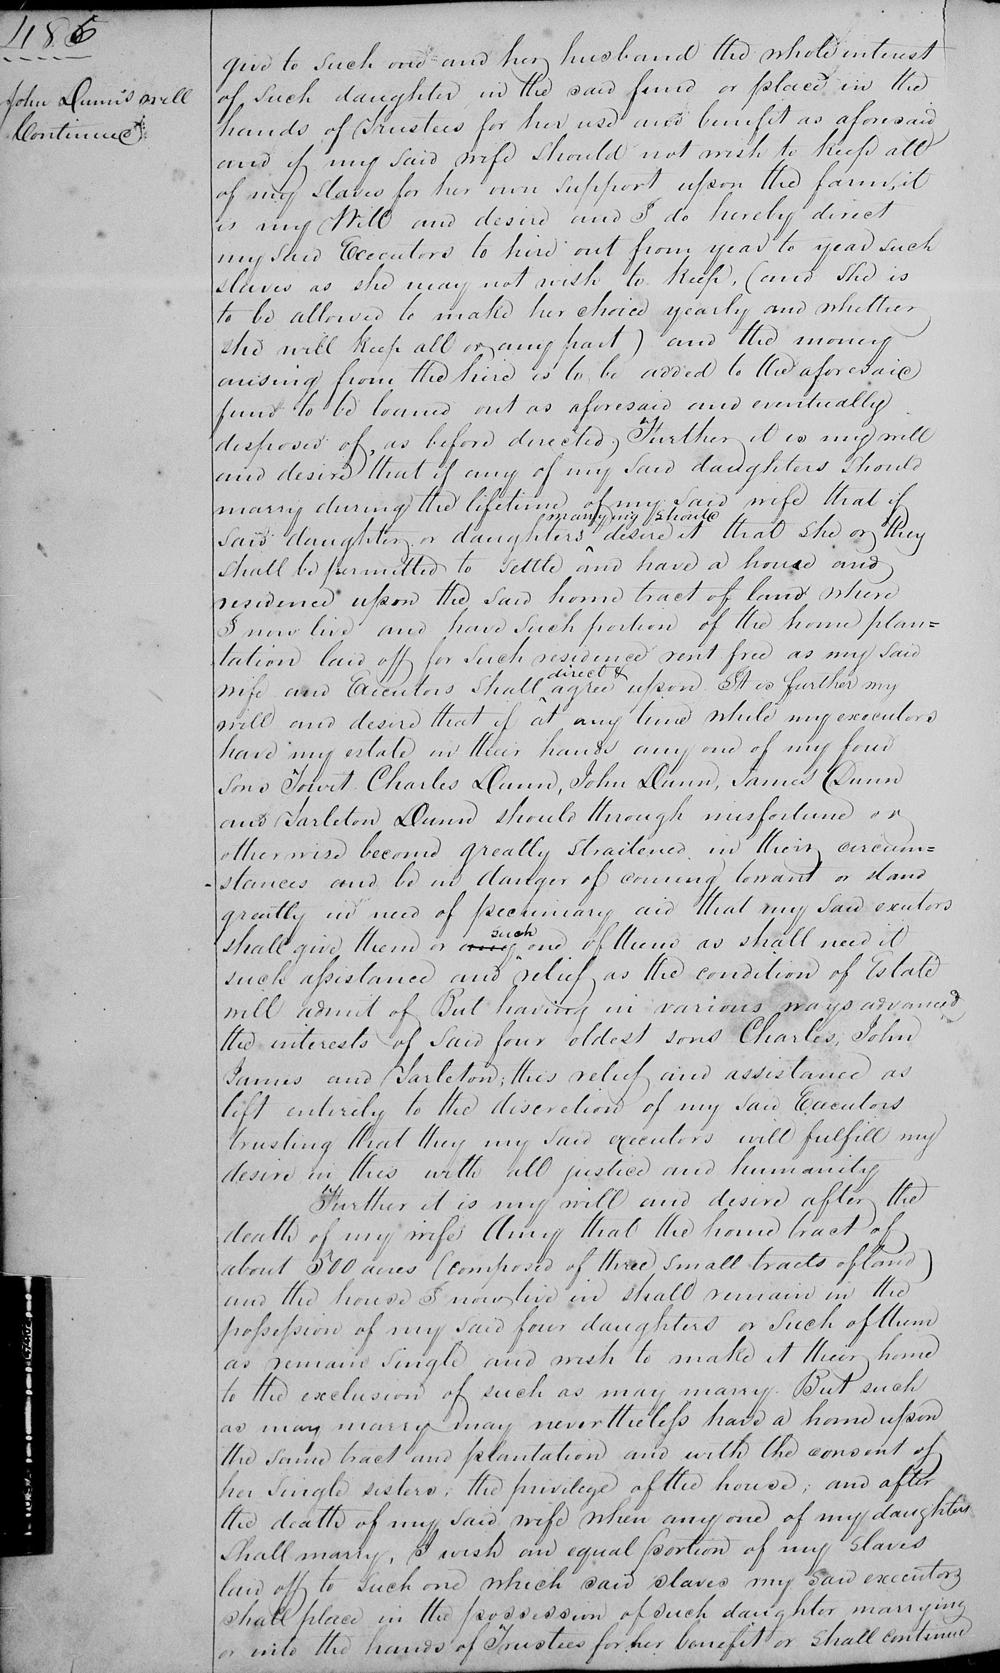 486
John Dunn's will
Continued
give to such one and her husband the whole interest
of such daughter in the said fund or place in the
hands of Trustees for her use and benefit as aforesaid
and if my said wife should not wish to keep all
of my slaves for her own support upon the farm, it
is my Will and desire and I do hereby direct
my said Executors to hire out from year to year such
slaves as she may not wish to keep, (and she is
to be allowed to make her choice yearly and whether
she will keep all or any part) and the money
arising from the hire is to be added to the aforesaid
fund to be loaned out as aforesaid and eventually
disposed of, as before directed, Further it is my will
and desire that if any of my said daughters should
marry during the lifetime of my said wife that if
said daughter or daughters marrying should desire it that she or they
shall be permitted to settle and have a house and
residence upon the said home tract of land where
I now live and have such portion of the home plan=
tation laid off for such residence rent free as my said
wife and Executors shall direct & agree upon. It is further my
will and desire that if at any time while my executors
have my estate in their hands any one of my four
sons Towit Charles Dunn, John Dunn, James Dunn
and Tarleton Dunn should through misfortune or
otherwise become greatly straitened in their circum=
stances and be in danger of coming to want or stand
greatly in need of pecuniary aid that my said exutors
shall give them or such one of them as shall need it
such assistance and relief as the condition of Estate
will admit of But having in various ways advanced
the interests of said four oldest sons Charles, John
James and Tarleton, this relief and assistance as
left entirely to the discretion of my said Executors
trusting that they my said executors will fulfill my
desire in this with all justice and humanity
Further it is my will and desire after the
death of my wife Amy that the home tract of
about 500 acres (composed of three small tracts of land)
and the house I now live in shall remain in the
possession of my said four daughters or such of them
as remain single and wish to make it their home
to the exclusion of such as may marry. But such
as may marry may nevertheless have a home upon
the same tract and plantation and with the consent of
her single sisters, the privilege of the house; and after
the death of my said wife when any one of my daughters
shall marry, I wish an equal portion of my slaves
laid off to such one which said slaves my said executors
shall place in the possession of such daughter marrying
or into the hands of Trustees for her benefit or shall continue